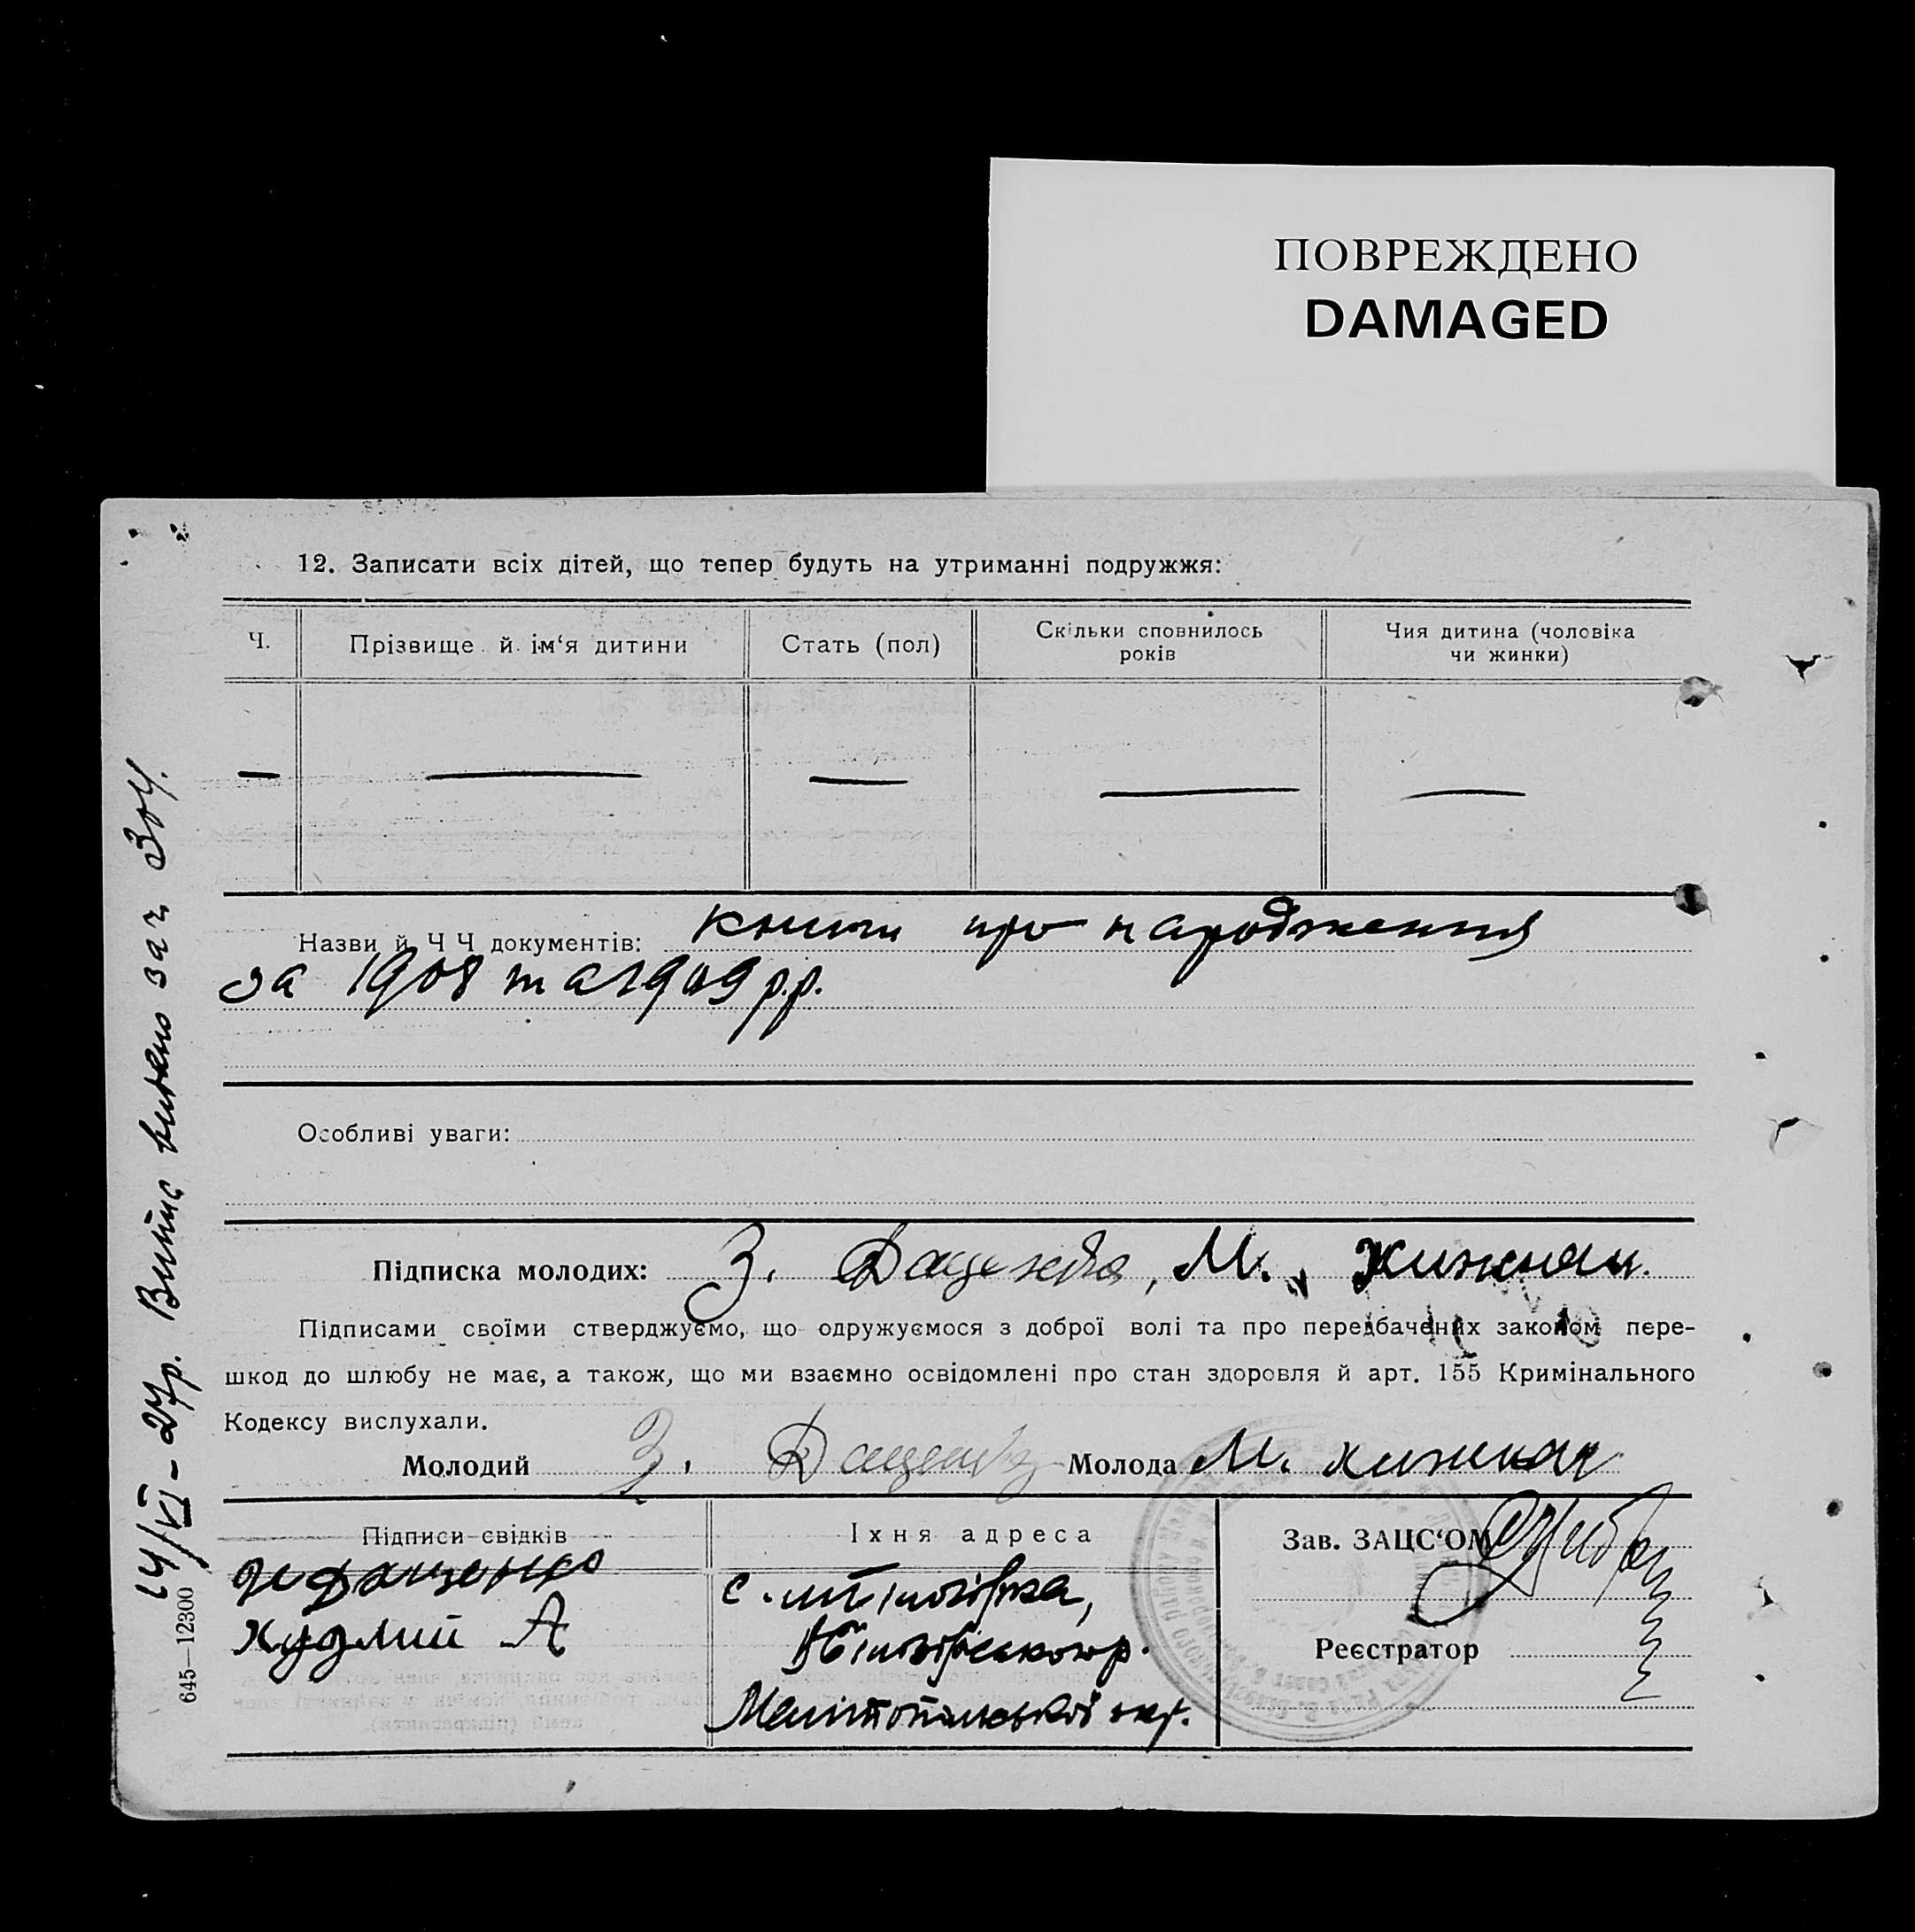 ПОВРЕЖДЕНО
DAMAGED
12. Записати всіх дітей, що тепер будуть на утриманні подружжя:
Ч.
Прізвище й ім‘я дитини
Стать (пол)
Скільки сповнилось
років
Чия дитина (чоловіка
чи жинки)
— — — — —
Назви й Ч Ч документів: книги про народження
за 1908 та 1909 р.р.
Особливі уваги:
Підписка молодих: З. Даценко, М.
Підписами своїми стверджуємо, що одружуємося з доброї волі та про передбачених законом пере-
шкод до шлюбу не має, а також, що ми взаємно освідомлені про стан здоровля й арт. 155 Кримінального
Кодексу вислухали.
Молодий З. Даценко Молода М.
Підписи свідків
Даценко
А
Іхня адреса
с.
Мелітопольської окр.
Зав. ЗАЦС‘ОМ
Реєстратор
14/VI-27р. Витяг видано за ч
645—12300